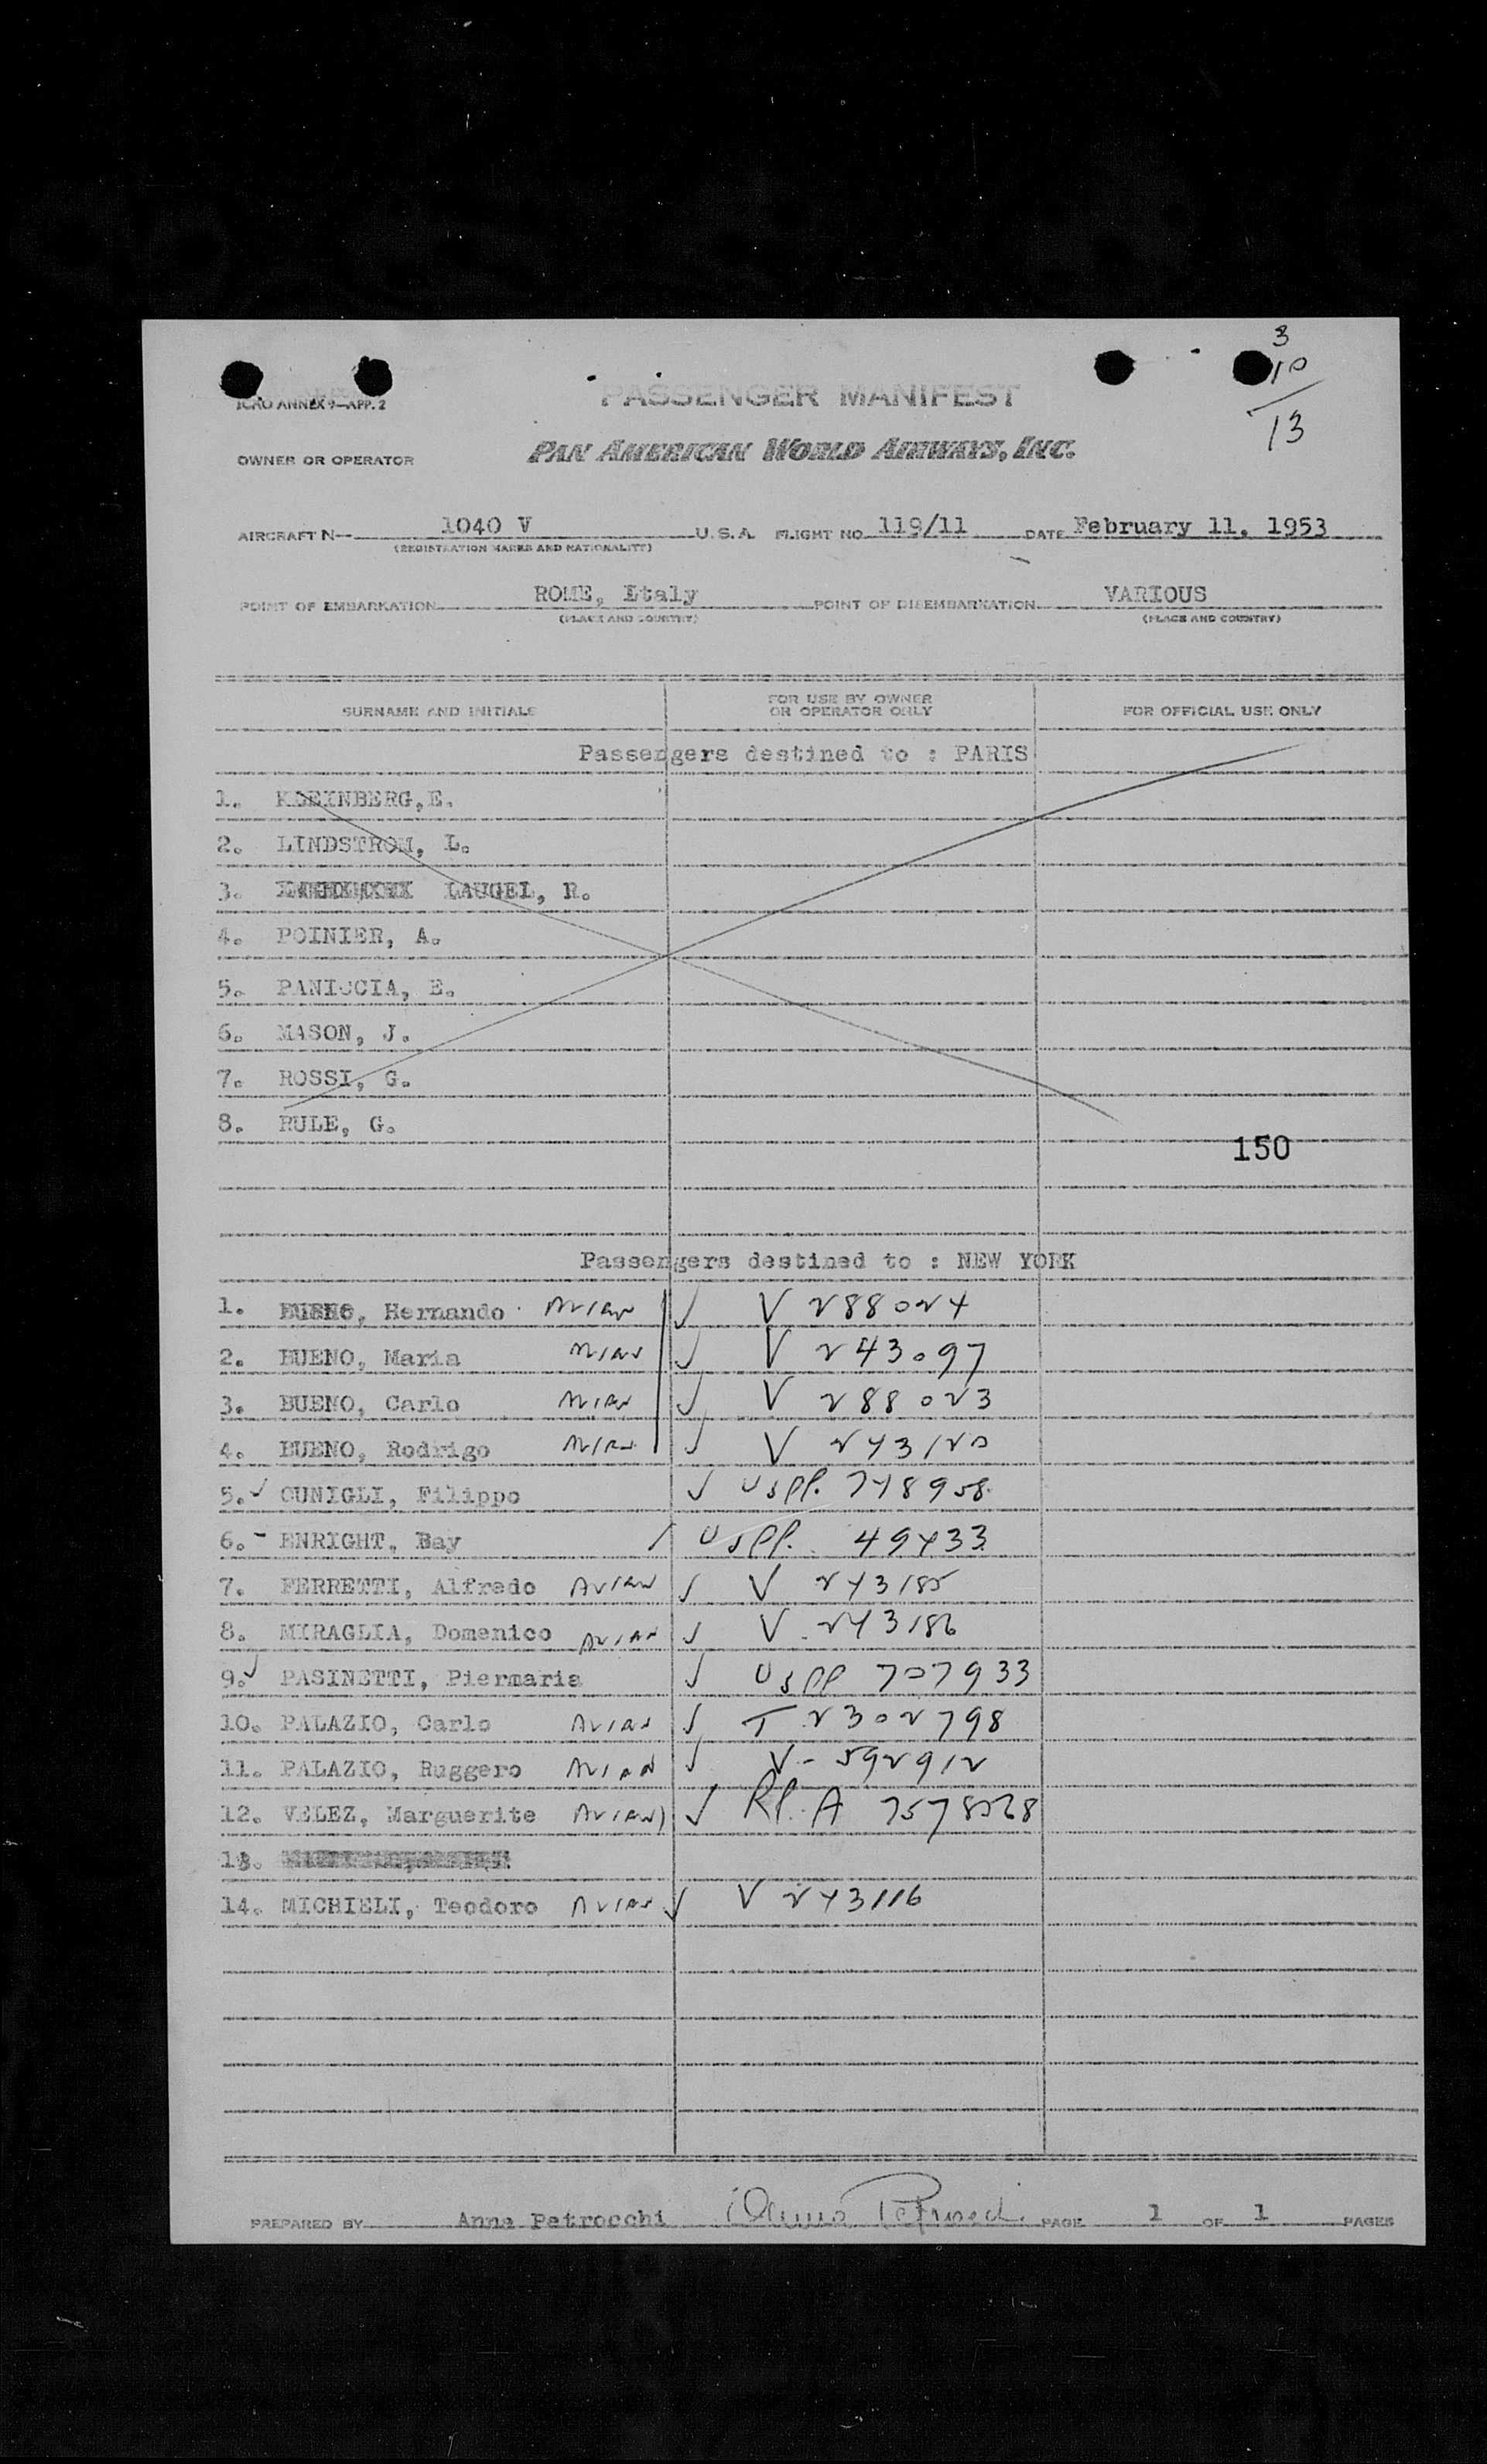 3
10
13
ICAO ANNEX 9—APP. 2
PASSENGER MANIFEST
OWNER OR OPERATOR PAN AMERICAN WORLD AIRWAYS, INC.
AIRCRAFT N— 1040 V U.S.A. FLIGHT NO. 119/11 DATE February 11, 1953
(REGISTRATION MARKS AND NATIONALITY)
POINT OF EMBARKATION ROME, Italy POINT OF DISEMBARKATION VARIOUS
(PLACE AND COUNTRY) (PLACE AND COUNTRY)
SURNAME AND INITIALS FOR USE BY OWNER OR OPERATOR ONLY FOR OFFICIAL USE ONLY
Passengers destined to : PARIS
1. KLEINBERG,E.
2. LINDSTROM, L.
3. LAUGEL, R.
4. POINIER, A.
5. PANICCIA, E.
6. MASON, J.
7. ROSSI, G.
8. RULE, G.
150
Passengers destined to : NEW YORK
1. BUENO, Hernando Avian V 288024
2. BUENO, Maria Avian V 243097
3. BUENO, Carlo Avian V 288023
4. BUENO, Rodrigo Avian V 243120
5. CUNIGLI, Filippo USPP. 748958
6. ENRIGHT, Bay USPP. 49433
7. FERRETTI, Alfredo Avian V 243185
8. MIRAGLIA, Domenico Avian V 243186
9. PASINETTI, Piermaria USPP 707933
10. PALAZIO, Carlo Avian T 2302798
11. PALAZIO, Ruggero Avian V-592912
12. VELEZ, Marguerite Avian RP. A 7578528
13.
14. MICHIELI, Teodoro Avian V 243116
PREPARED BY Anna Petrocchi Anna Petrocchi PAGE 1 OF 1 PAGES